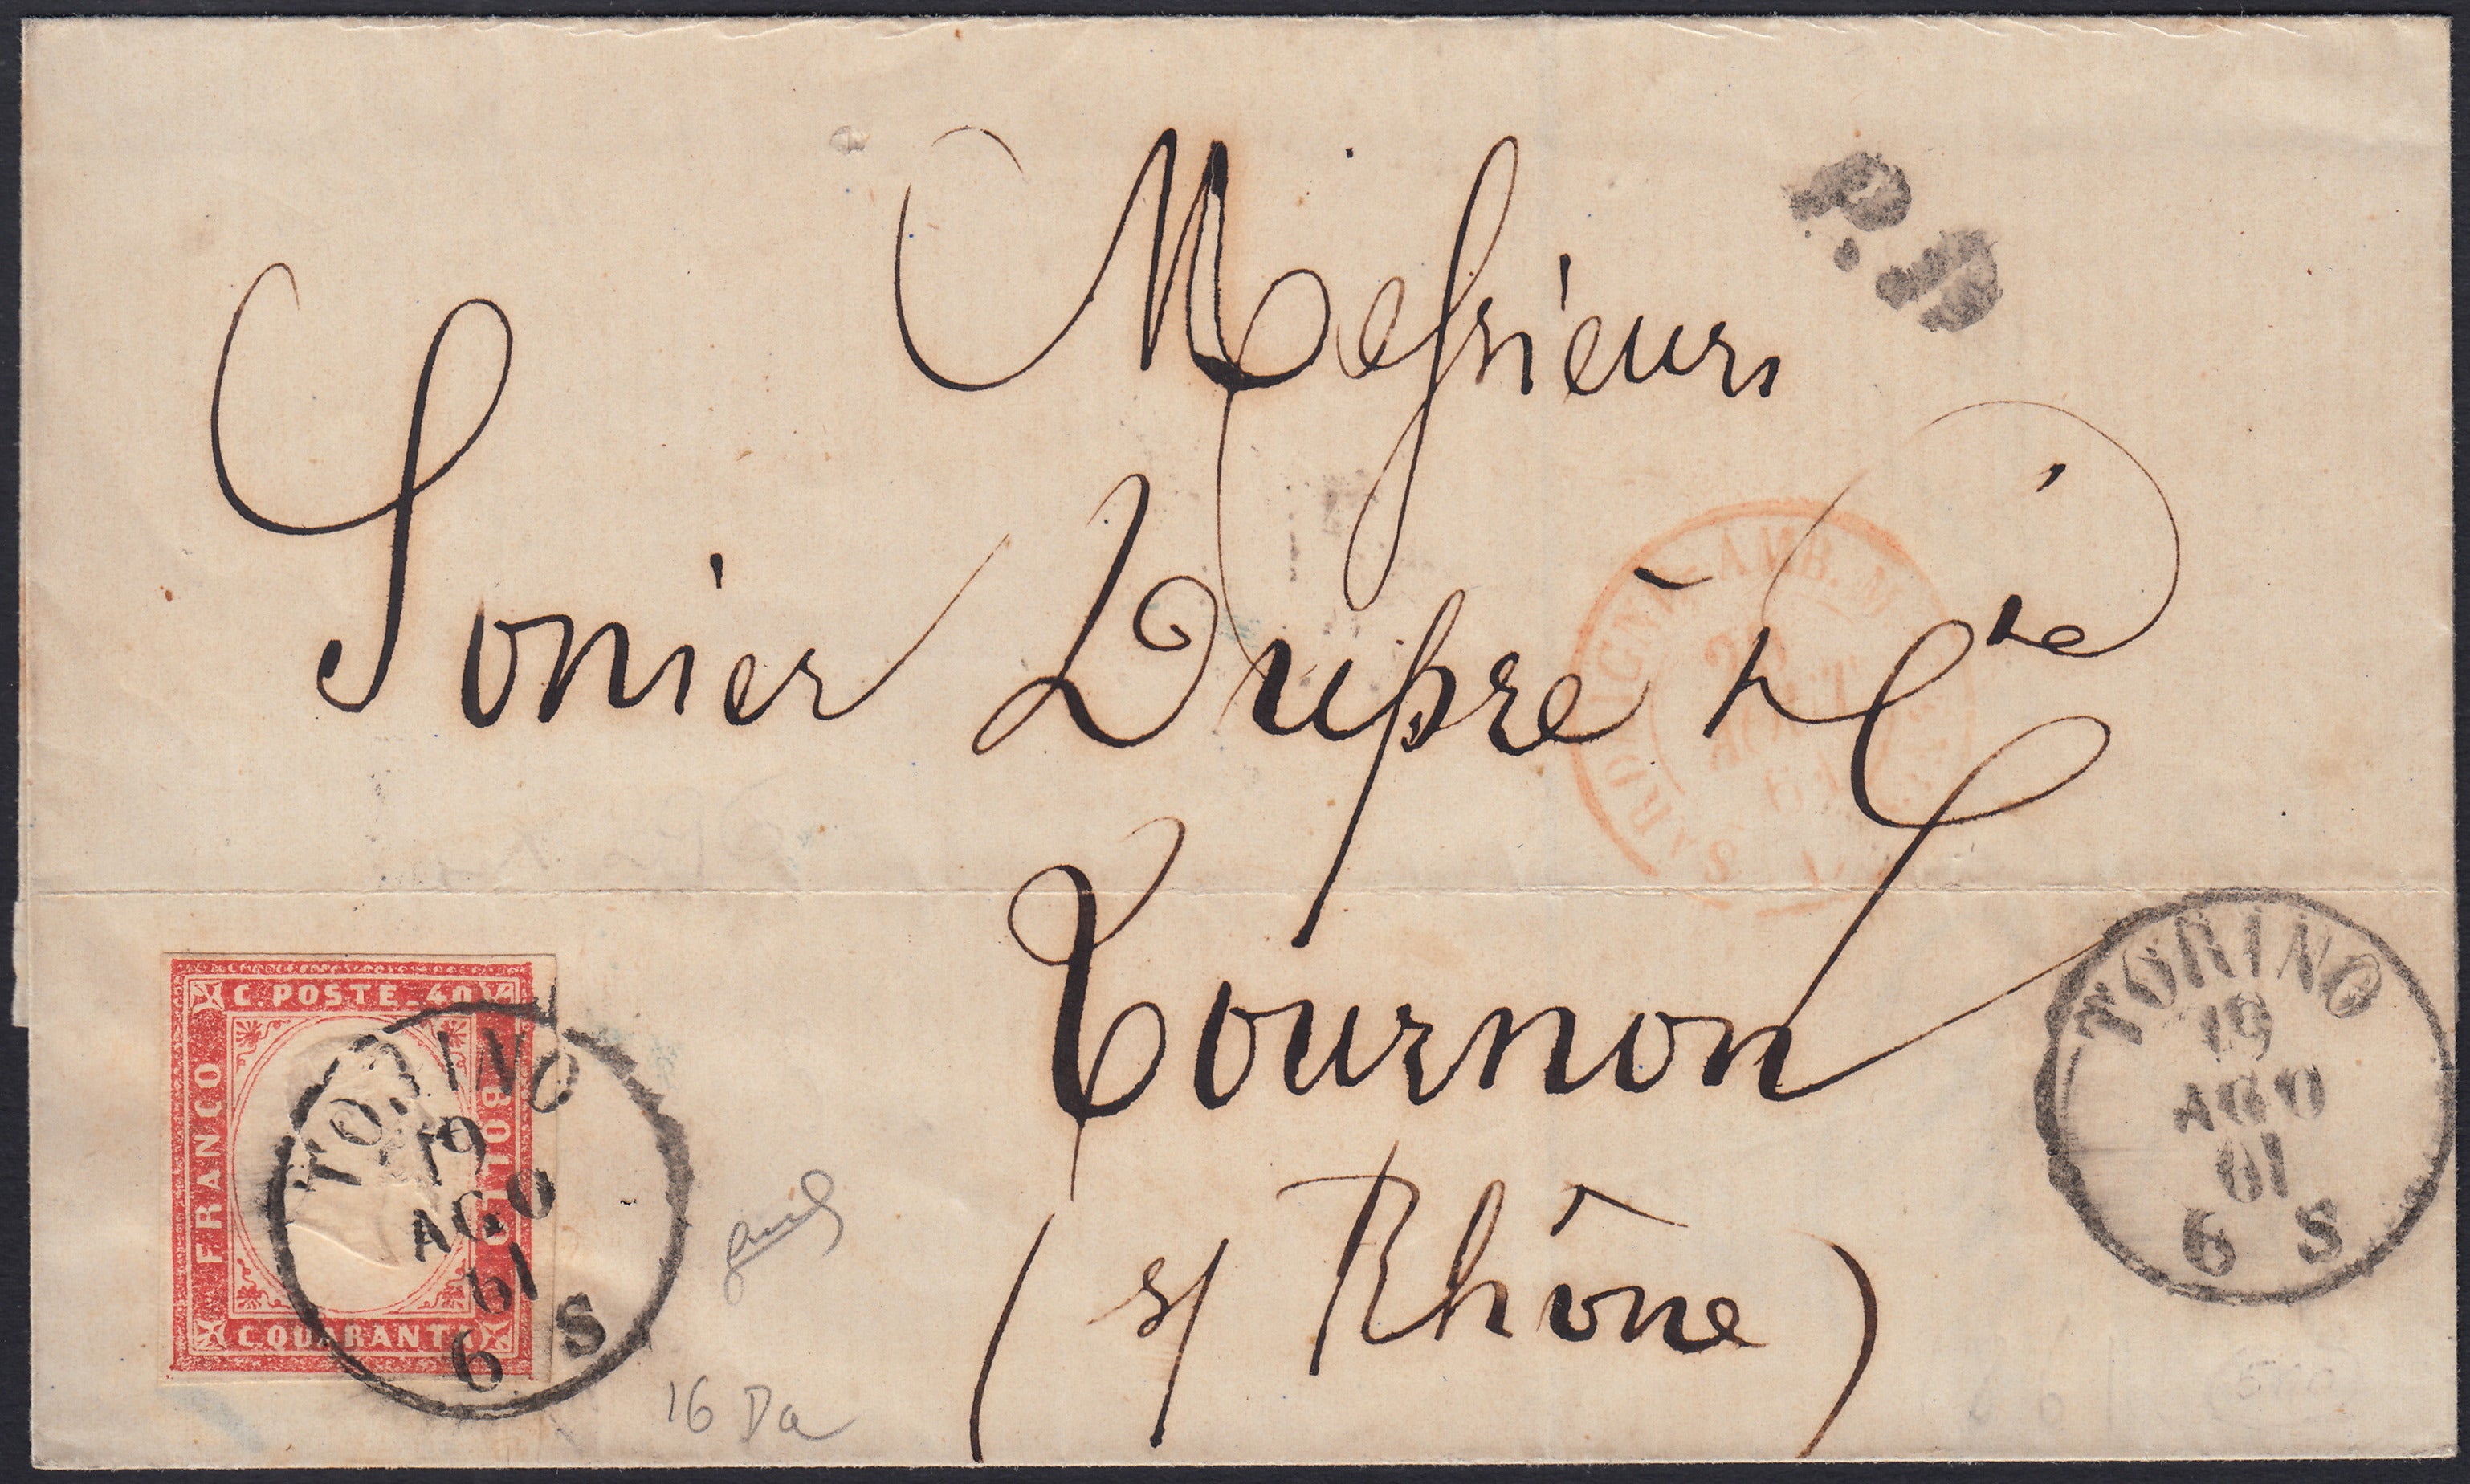 Messieurs
P.D.
Sonier Dupré & Cie
SARDAIGNE AMB. M
AOUT
61
Tournon
(s/ Rhône)
C. POSTE. 40
FRANCO
BOLLO
C. QUARANTA
TORINO
19
AGO
61
6 S
TORINO
19
AGO
61
6 S
16 Da